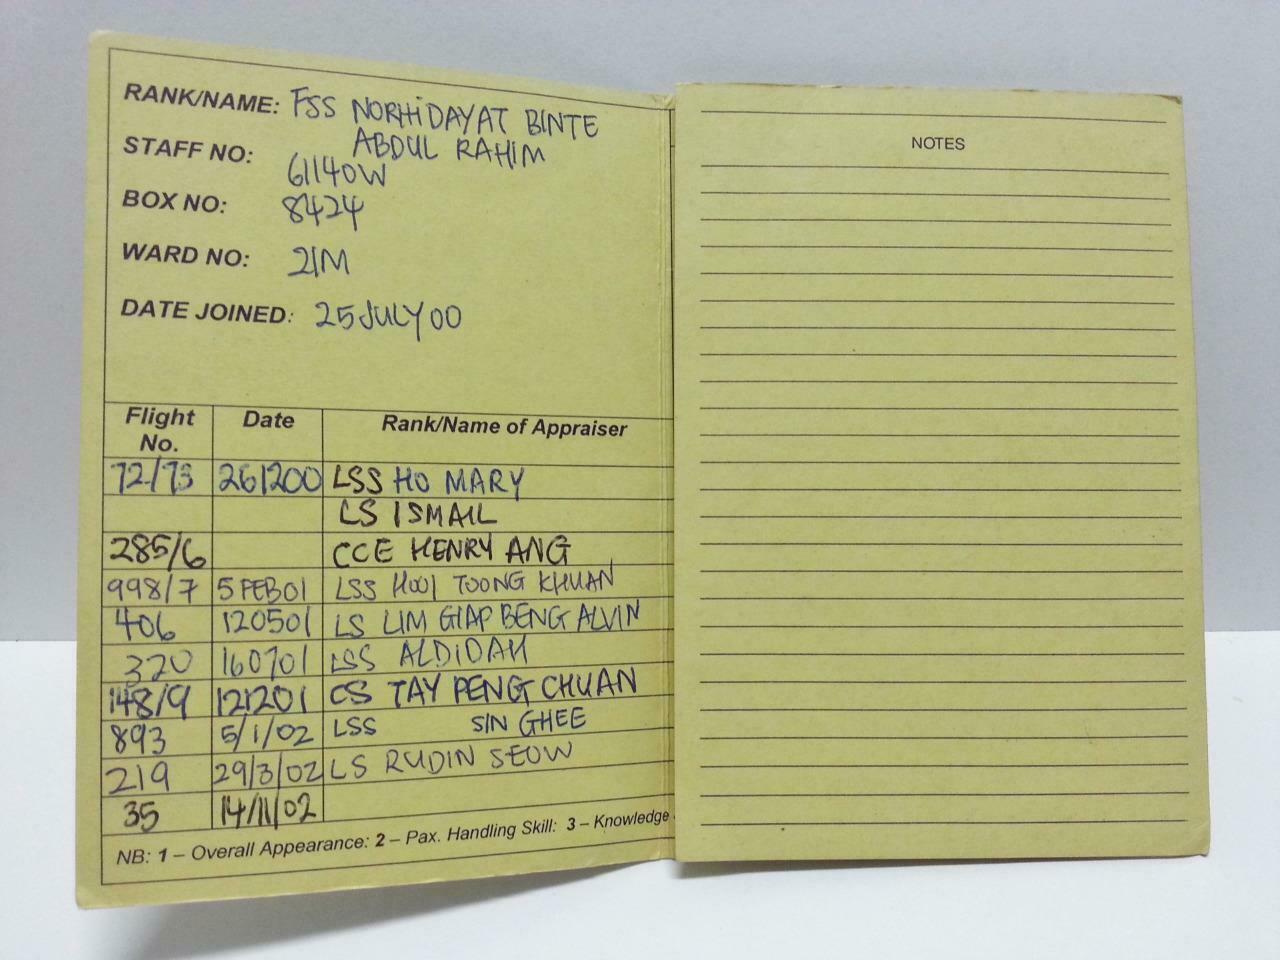 RANK/NAME: FSS NORHIDAYAT BINTE
ABDUL RAHIM
STAFF NO: 61140W
BOX NO: 8424
WARD NO: 21M
DATE JOINED: 25 JULY 00
Flight No. Date Rank/Name of Appraiser
72/73 261200 LSS HO MARY
LS ISMAIL
285/6 CCE HENRY ANG
998/7 5 FEB 01 LSS HOOI TOONG KHUAN
406 120501 LS LIM GIAP BENG ALVIN
320 160701 LSS ALDIDAH
148/9 121201 CS TAY PENG CHUAN
893 5/1/02 LSS SIN GHEE
219 29/3/02 LS RUDIN SEOW
35 14/11/02
NB: 1 – Overall Appearance: 2 – Pax. Handling Skill: 3 – Knowledge
NOTES